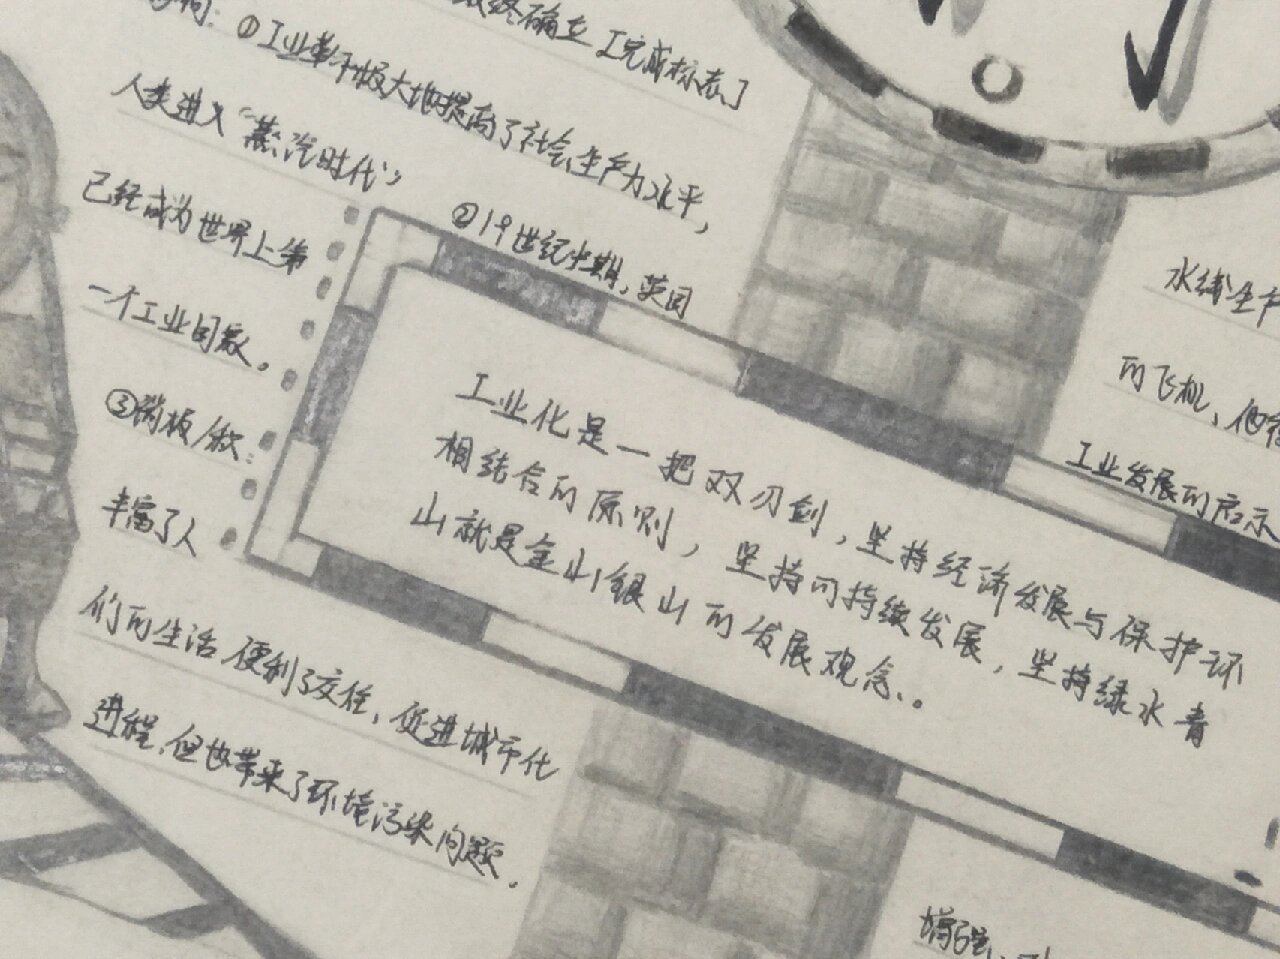 最终确立［完成标志］
影响：①工业革命极大地提高了社会生产力水平，
人类进入“蒸汽时代”，
②19世纪中期，英国
已经成为世界上第
一个工业国家。
③积极/消极：
丰富了人
们的生活，便利了交往，促进城市化
进程，但也带来了环境污染问题。
工业化是一把双刃剑，坚持经济发展与保护环
相结合的原则，坚持可持续发展，坚持绿水青
山就是金山银山的发展观念。
水线生产
的飞机、
工业发展的启示
增强